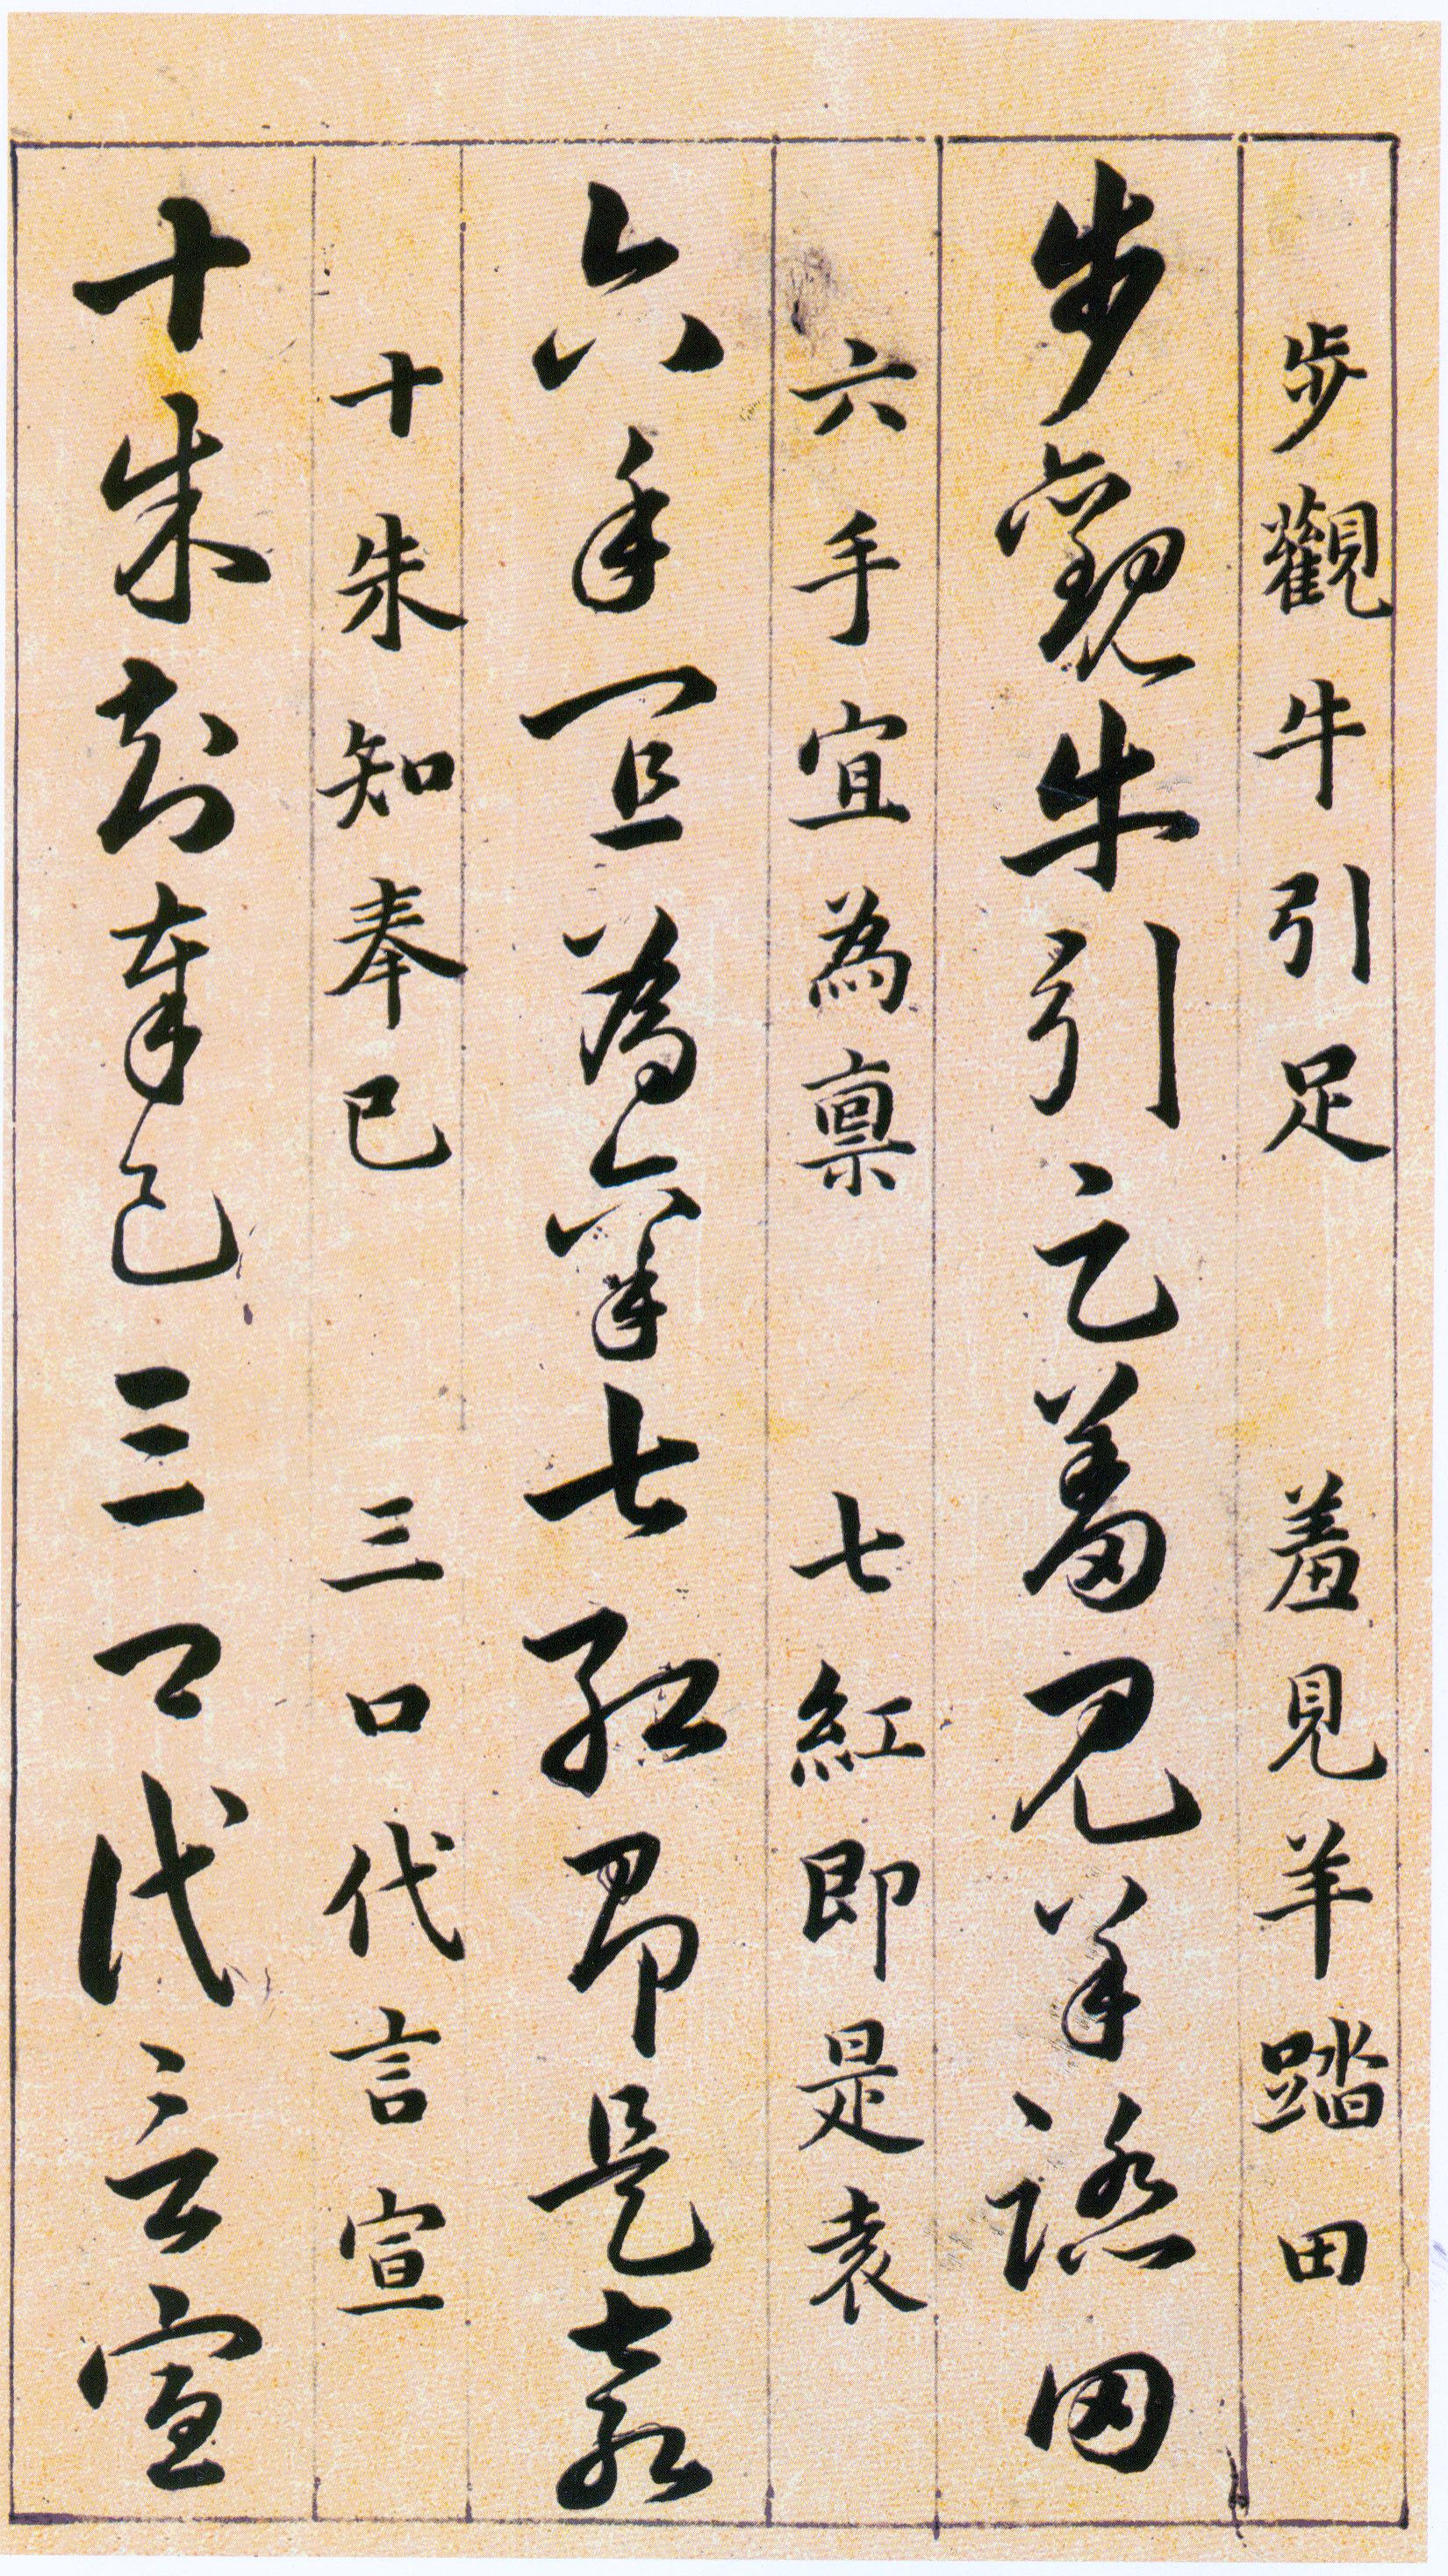 步觀牛引足　羞見羊踏田
步觀牛引足羞見羊踏田
六手宜為稟　七紅即是袁
六手宜為稟七紅即是袁
十朱知奉已　三口代言宣
十朱知奉已三口代言宣